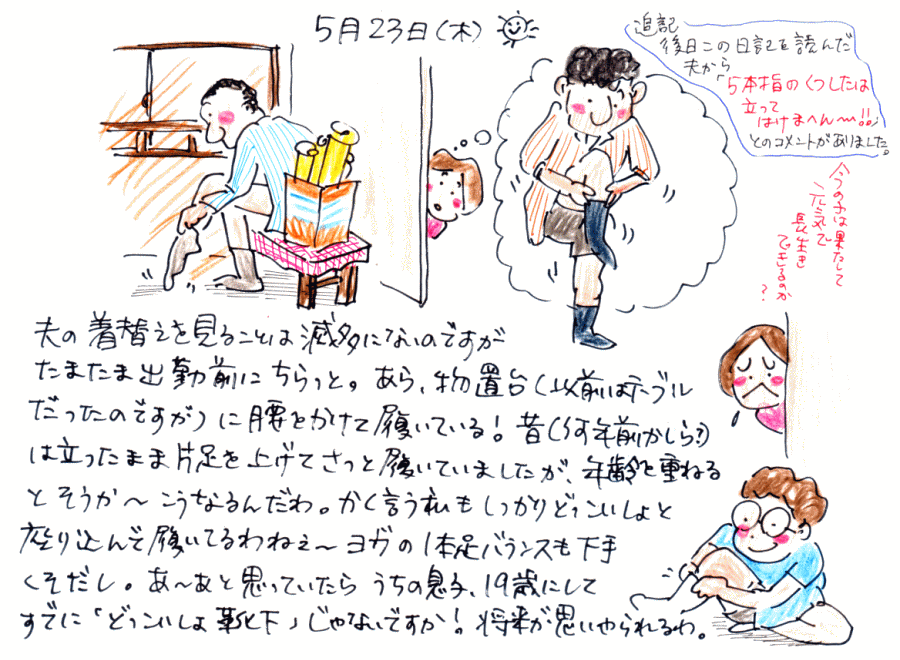 5月23日(木)
追記
後日この日記を読んだ
夫から「5本指のくつしたは
立って
はけまへん〜!!」
とのコメントがありました。
今の子は果たして
元気で
長生き
できるのか
?
夫の着替えを見ることは滅多にないのですが
たまたま出勤前にちらっと。あら、物置台(以前はテーブル
だったのですが)に腰をかけて履いている!昔(うす年前かしら?)
は立ったまま片足を上げてさっと履いていましたが、年齢を重ねる
とそうか〜こうなるんだわ。かく言う私もしっかりどっこいしょと
座り込んで履いてるわねぇ〜ヨガの1本足バランスも下手
くそだし。あ〜あと思っていたらうちの息子、19歳にして
すでに「どっこいしょ靴下」じゃないですか!。将来が思いやられるわ。